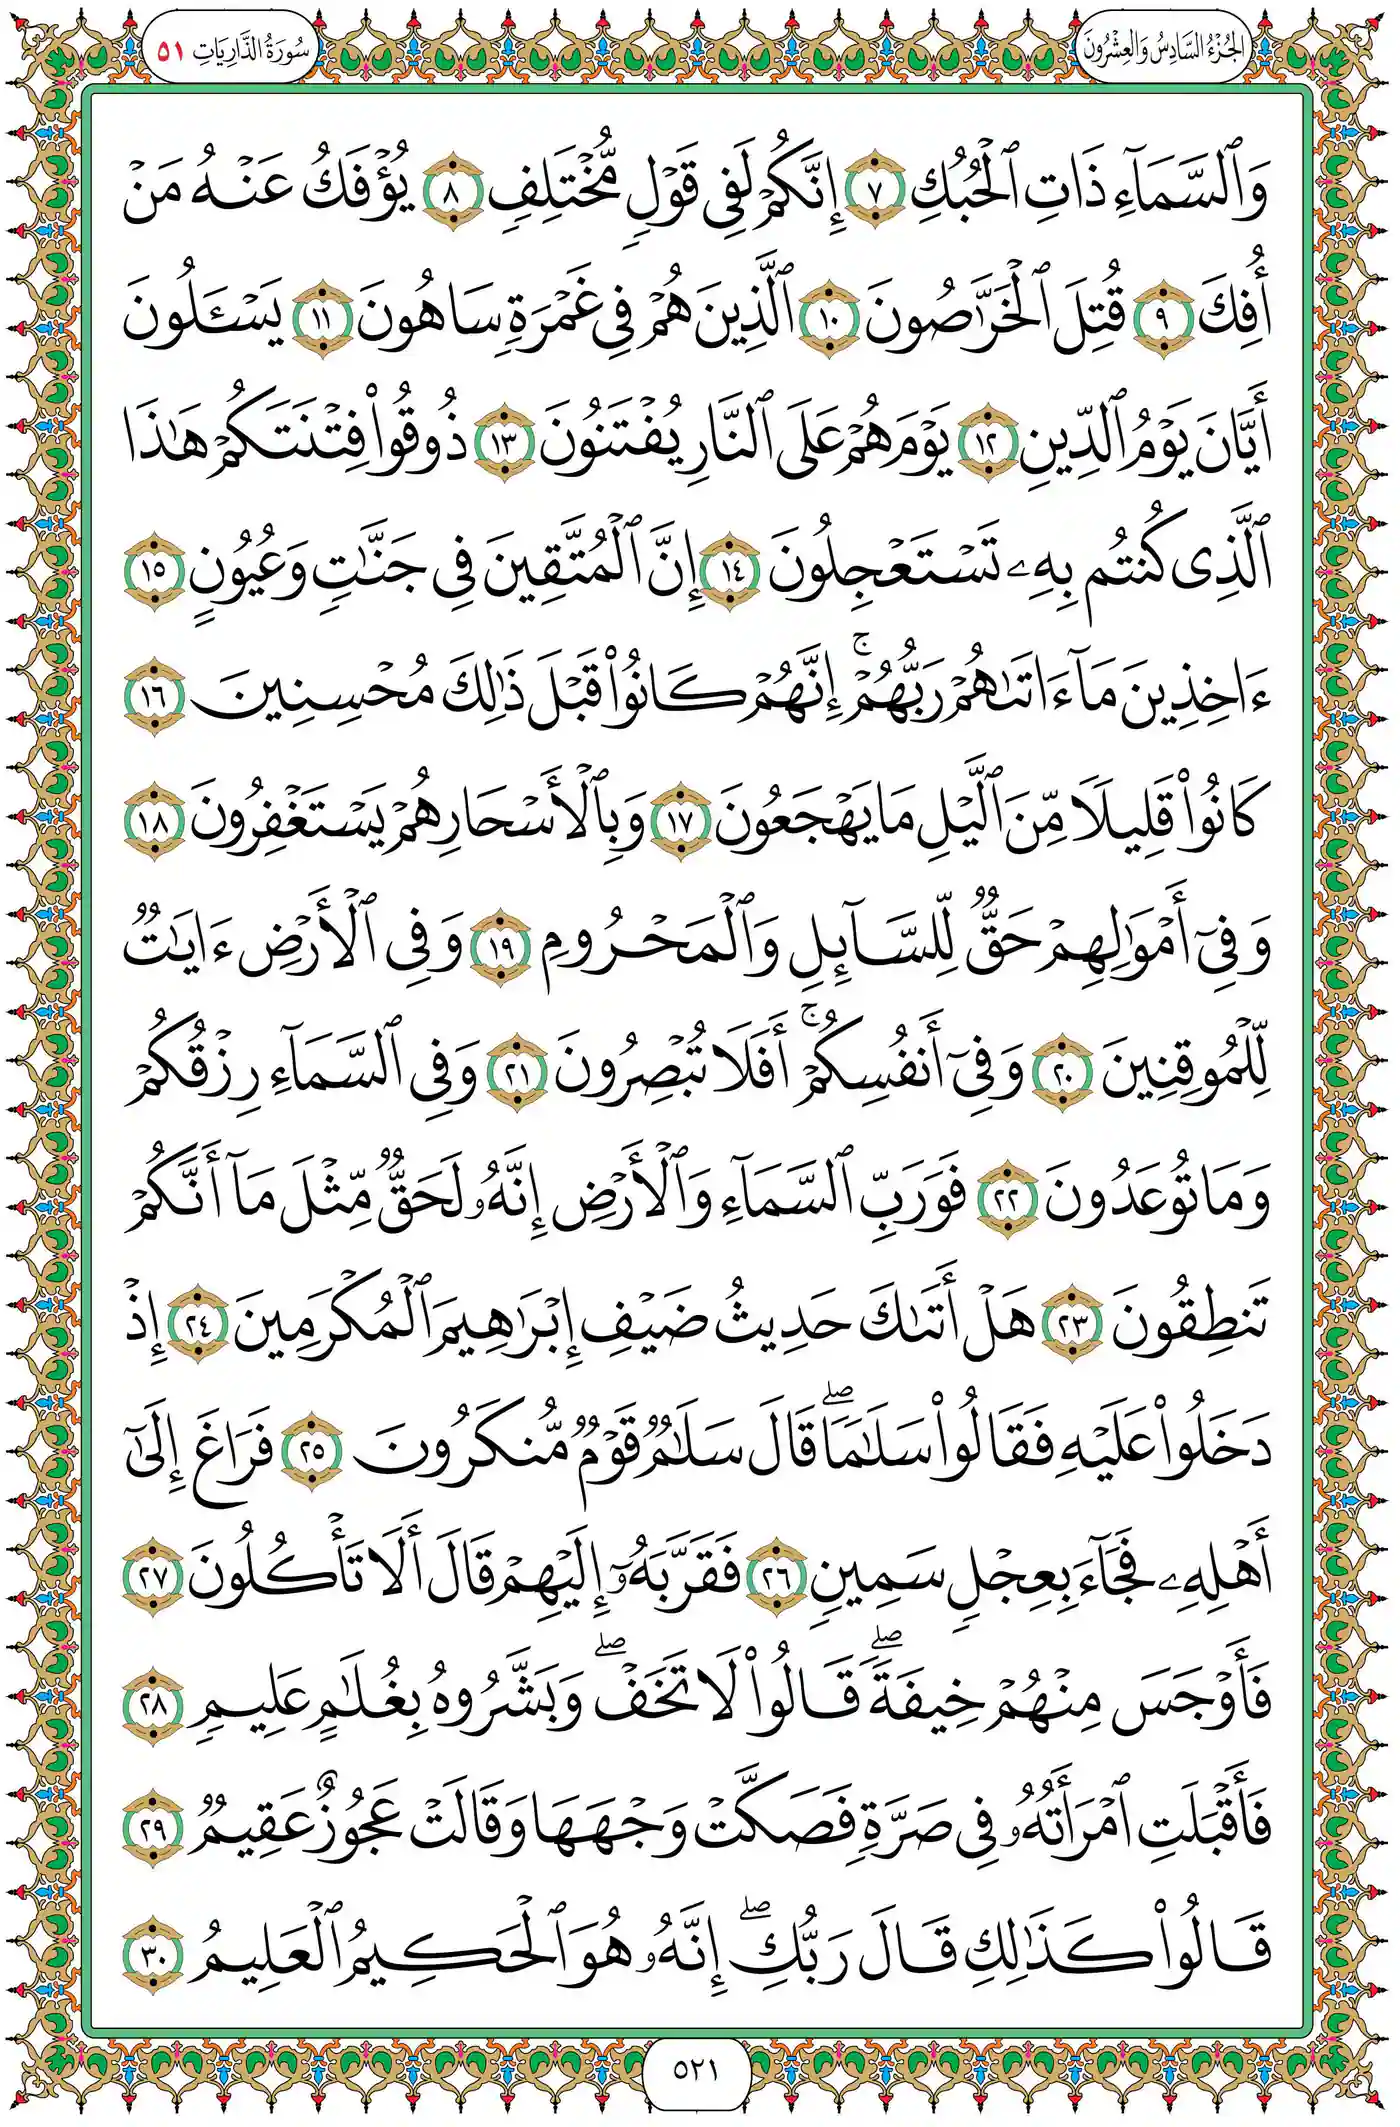 الجُزْءُ السَّادِسُ وَالعِشْرُونَ
سُورَةُ الذَّارِيَاتِ ٥١
وَٱلسَّمَآءِ ذَاتِ ٱلۡحُبُكِ ٧ إِنَّكُمۡ لَفِي قَوۡلٖ مُّخۡتَلِفٖ ٨ يُؤۡفَكُ عَنۡهُ مَنۡ
أُفِكَ ٩ قُتِلَ ٱلۡخَرَّٰصُونَ ١٠ ٱلَّذِينَ هُمۡ فِي غَمۡرَةٖ سَاهُونَ ١١ يَسۡـَٔلُونَ
أَيَّانَ يَوۡمُ ٱلدِّينِ ١٢ يَوۡمَ هُمۡ عَلَى ٱلنَّارِ يُفۡتَنُونَ ١٣ ذُوقُواْ فِتۡنَتَكُمۡ هَٰذَا
ٱلَّذِي كُنتُم بِهِۦ تَسۡتَعۡجِلُونَ ١٤ إِنَّ ٱلۡمُتَّقِينَ فِي جَنَّٰتٖ وَعُيُونٍ ١٥
ءَاخِذِينَ مَآ ءَاتَىٰهُمۡ رَبُّهُمۡۚ إِنَّهُمۡ كَانُواْ قَبۡلَ ذَٰلِكَ مُحۡسِنِينَ ١٦
كَانُواْ قَلِيلٗا مِّنَ ٱلَّيۡلِ مَا يَهۡجَعُونَ ١٧ وَبِٱلۡأَسۡحَارِ هُمۡ يَسۡتَغۡفِرُونَ ١٨
وَفِيٓ أَمۡوَٰلِهِمۡ حَقّٞ لِّلسَّآئِلِ وَٱلۡمَحۡرُومِ ١٩ وَفِي ٱلۡأَرۡضِ ءَايَٰتٞ
لِّلۡمُوقِنِينَ ٢٠ وَفِيٓ أَنفُسِكُمۡۚ أَفَلَا تُبۡصِرُونَ ٢١ وَفِي ٱلسَّمَآءِ رِزۡقُكُمۡ
وَمَا تُوعَدُونَ ٢٢ فَوَرَبِّ ٱلسَّمَآءِ وَٱلۡأَرۡضِ إِنَّهُۥ لَحَقّٞ مِّثۡلَ مَآ أَنَّكُمۡ
تَنطِقُونَ ٢٣ هَلۡ أَتَىٰكَ حَدِيثُ ضَيۡفِ إِبۡرَٰهِيمَ ٱلۡمُكۡرَمِينَ ٢٤ إِذۡ
دَخَلُواْ عَلَيۡهِ فَقَالُواْ سَلَٰمٗاۖ قَالَ سَلَٰمٞ قَوۡمٞ مُّنكَرُونَ ٢٥ فَرَاغَ إِلَىٰٓ
أَهۡلِهِۦ فَجَآءَ بِعِجۡلٖ سَمِينٖ ٢٦ فَقَرَّبَهُۥٓ إِلَيۡهِمۡ قَالَ أَلَا تَأۡكُلُونَ ٢٧
فَأَوۡجَسَ مِنۡهُمۡ خِيفَةٗۖ قَالُواْ لَا تَخَفۡۖ وَبَشَّرُوهُ بِغُلَٰمٍ عَلِيمٖ ٢٨
فَأَقۡبَلَتِ ٱمۡرَأَتُهُۥ فِي صَرَّةٖ فَصَكَّتۡ وَجۡهَهَا وَقَالَتۡ عَجُوزٌ عَقِيمٞ ٢٩
قَالُواْ كَذَٰلِكِ قَالَ رَبُّكِۖ إِنَّهُۥ هُوَ ٱلۡحَكِيمُ ٱلۡعَلِيمُ ٣٠
٥٢١